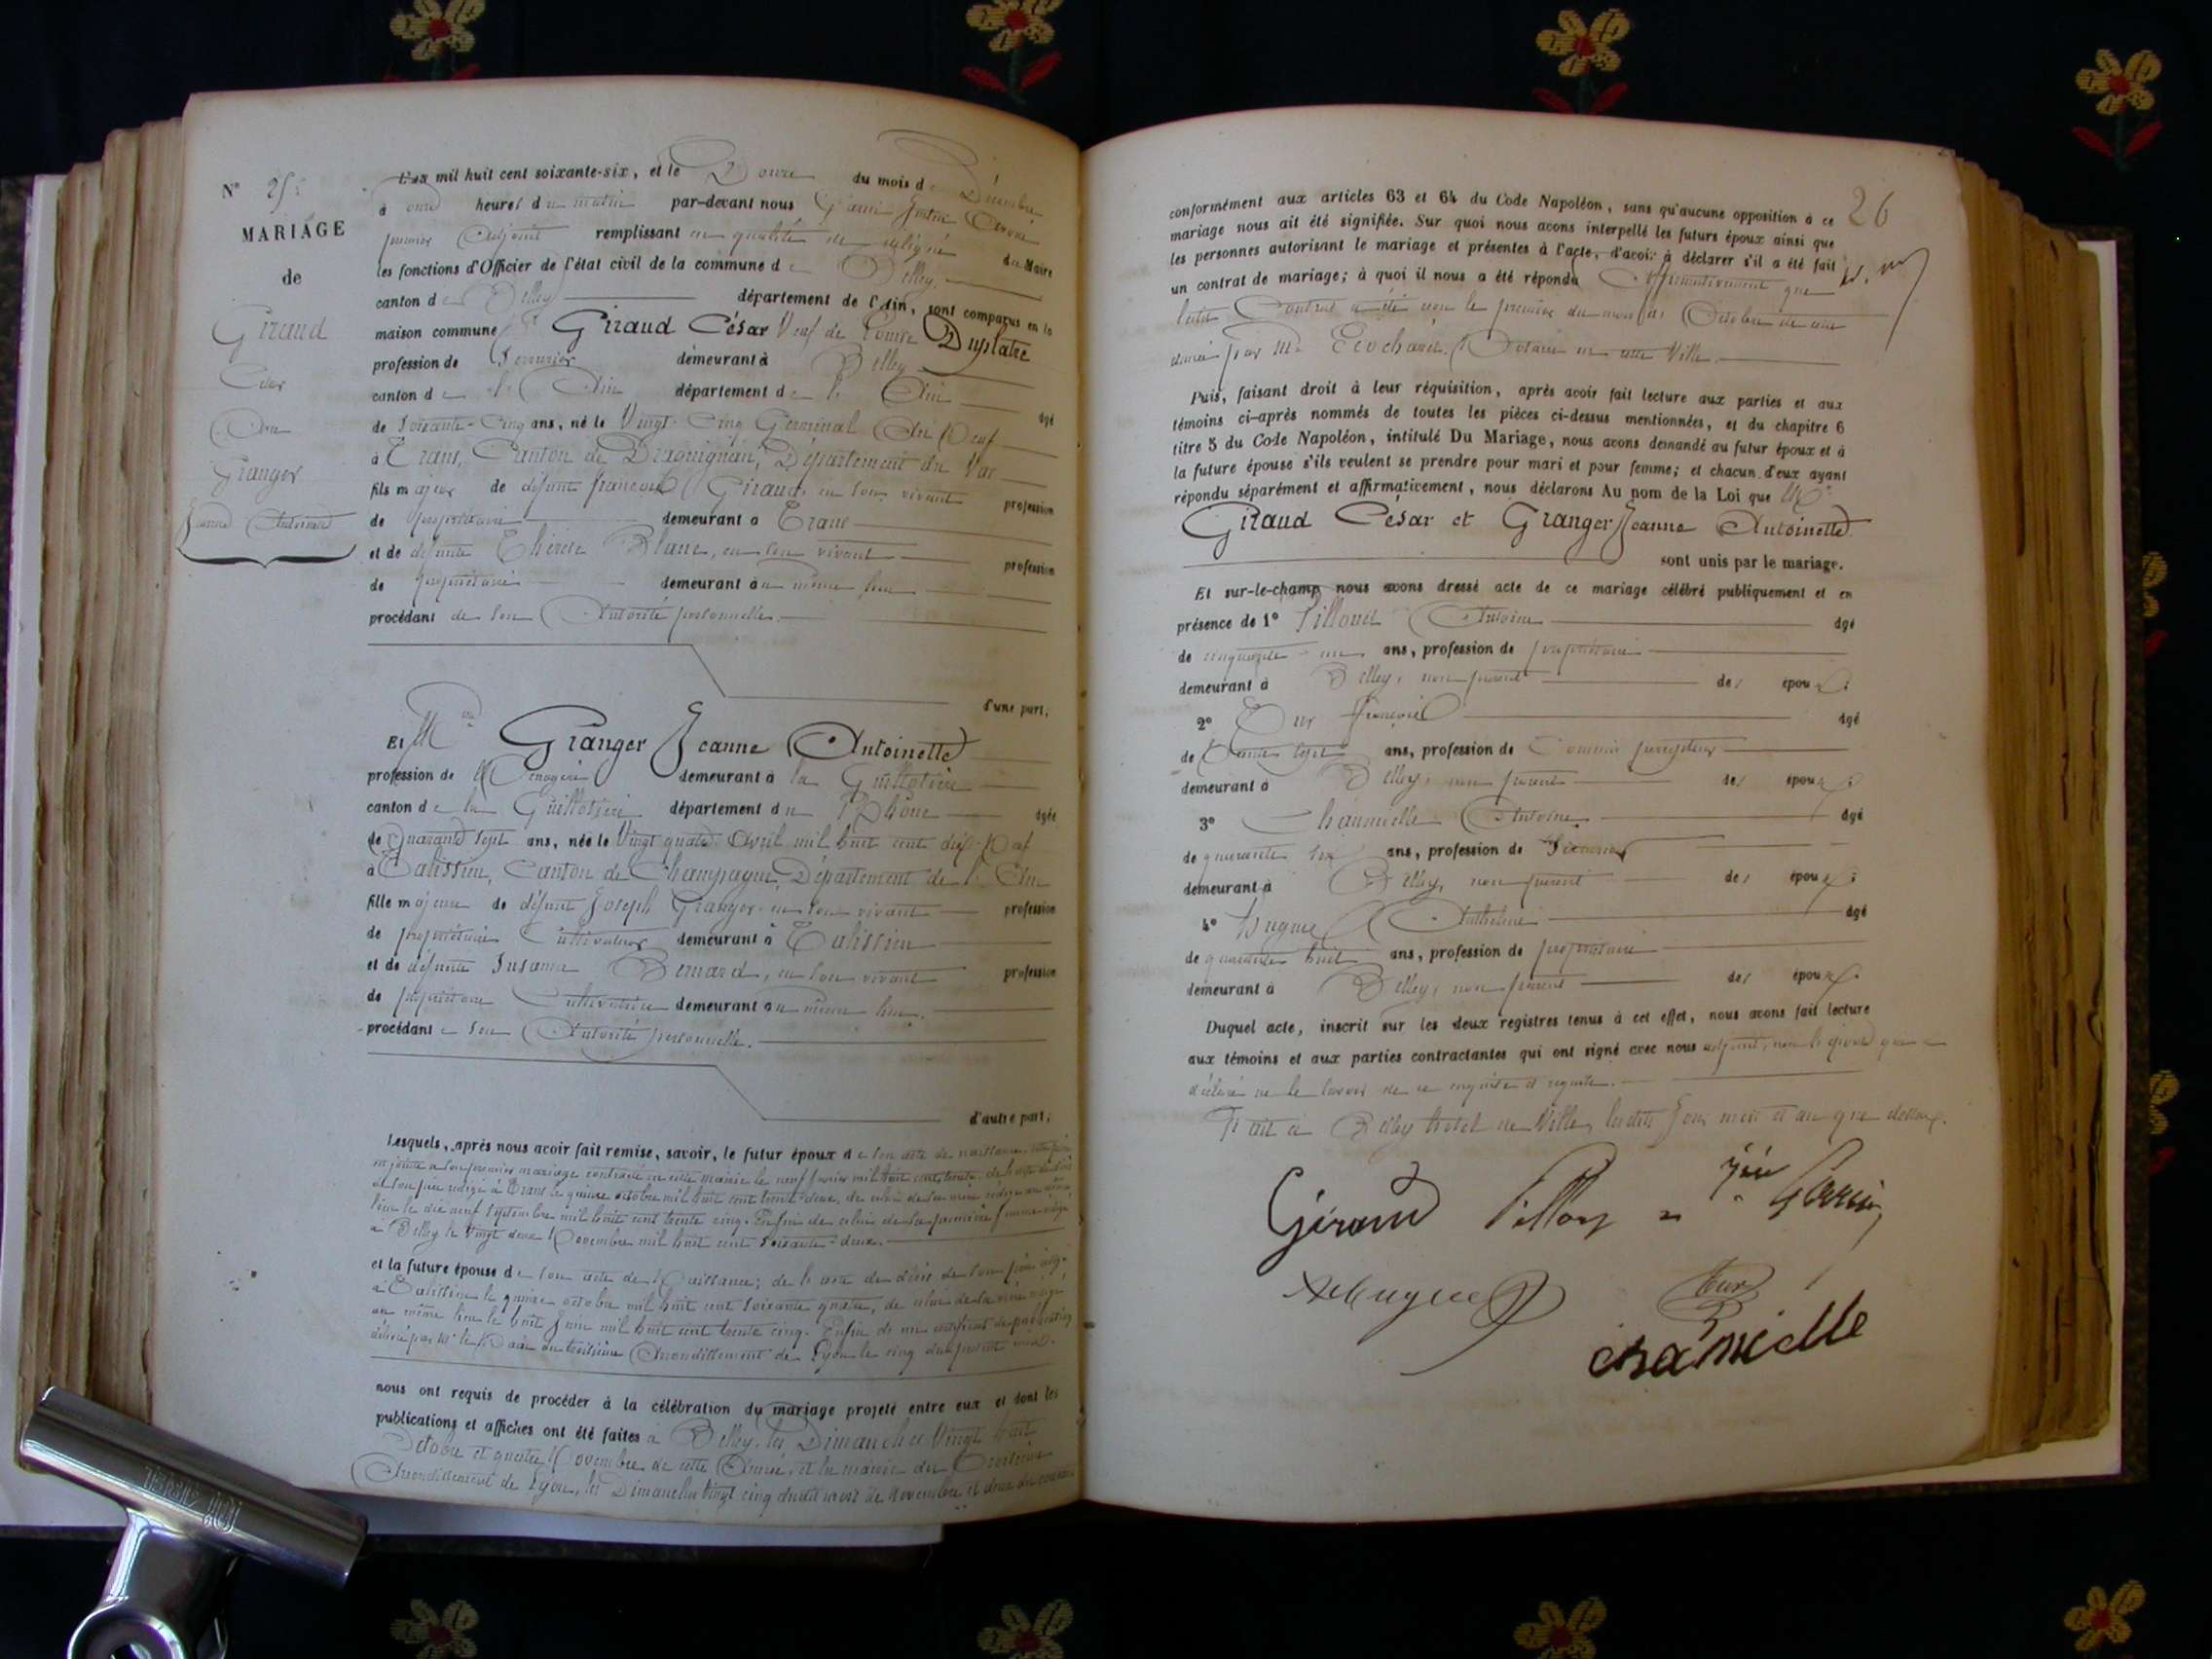 N° 25
MARIAGE
de
Giraud
César
Avec
Granger
Jeanne Antoinette
L'an mil huit cent soixante-six, et le Douze du mois de Décembre
à onze heures du matin par-devant nous
premier Adjoint remplissant en qualité de délégué du Maire
les fonctions d'Officier de l'état civil de la commune de Belley
canton de Belley département de l'Ain, sont comparus en la
maison commune Giraud César Veuf de Louise Duplatre
profession de Serrurier demeurant à Belley
canton de l'Ain département de l'Ain âgé
de Soixante-Cinq ans, né le Vingt-Cinq Germinal An Neuf
à Trans, Canton de Draguignan, Département du Var
fils majeur de défunt françois Giraud, en son vivant profession
de propriétaire demeurant à Trans
et de défunte Thérèse Blanc, en son vivant profession
de propriétaire demeurant au même lieu
procédant de son Autorité personnelle.
d'une part,
Et Granger Jeanne Antoinette
profession de Ménagère demeurant à la Guillotière
canton de la Guillotière département du Rhône âgée
de Quarante sept ans, née le Vingt quatre Avril mil huit cent dix-Neuf
à Talissieu, Canton de Champagne, Département de l'Ain
fille majeure de défunt Joseph Granger en son vivant profession
de propriétaire Cultivateur demeurant à Talissieu
et de défunte Susanne Bernard, en son vivant profession
de propriétaire Cultivatrice demeurant au même lieu.
procédant de son Autorité personnelle.
d'autre part;
Lesquels, après nous avoir fait remise, savoir, le futur époux de son acte de naissance,
à son premier mariage contracté en cette mairie le neuf février mil huit cent trente, de l'acte de décès
de son père rédigé à Trans le quinze octobre mil huit cent trente-deux, de celui de sa mère rédigé au même
lieu le dix neuf Septembre mil huit cent trente cinq. Enfin de celui de sa première femme rédigé
à Belley le Vingt deux Novembre mil huit cent soixante-deux.
et la future épouse de son acte de Naissance; de l'acte de décès de son père rédigé
à Talissieu le quinze octobre mil huit cent soixante quatre, de celui de sa mère rédigé
au même lieu le huit Juin mil huit cent trente cinq. Enfin de un certificat de publication
délivré par Mr le Maire du troisième Arrondissement de Lyon le cinq du présent mois.
nous ont requis de procéder à la célébration du mariage projeté entre eux et dont les
publications et affiches ont été faites à Belley les Dimanches Vingt huit
Octobre et quatre Novembre de cette Année, et la mairie du Troisième
Arrondissement de Lyon, les Dimanches Vingt cinq dudit mois de Novembre et deux du courant
26
conformément aux articles 63 et 64 du Code Napoléon, sans qu'aucune opposition à ce
mariage nous ait été signifiée. Sur quoi nous avons interpellé les futurs époux ainsi que
les personnes autorisant le mariage et présentes à l'acte, d'avoir à déclarer s'il a été fait
un contrat de mariage; à quoi il nous a été répondu Affirmativement que
ledit Contrat a été reçu le premier du mois d'Octobre de cette
année par Me Notaire en cette Ville.
Puis, faisant droit à leur réquisition, après avoir fait lecture aux parties et aux
témoins ci-après nommés de toutes les pièces ci-dessus mentionnées, et du chapitre 6
titre 5 du Code Napoléon, intitulé Du Mariage, nous avons demandé au futur époux et à
la future épouse s'ils veulent se prendre pour mari et pour femme; et chacun d'eux ayant
répondu séparément et affirmativement, nous déclarons Au nom de la Loi que
Giraud César et Granger Jeanne Antoinette
sont unis par le mariage.
Et sur-le-champ nous avons dressé acte de ce mariage célébré publiquement et en
présence de 1° Antoine âgé
de cinquante un ans, profession de propriétaire
demeurant à Belley, non parent des époux;
2° françois âgé
de Trente sept ans, profession de Commis percepteur
demeurant à Belley, non parent des époux;
3° Chamielle Antoine âgé
de quarante six ans, profession de Serrurier
demeurant à Belley, non parent des époux;
4° Hugues Anthelme âgé
de quarante huit ans, profession de propriétaire
demeurant à Belley, non parent des époux.
Duquel acte, inscrit sur les deux registres tenus à cet effet, nous avons fait lecture
aux témoins et aux parties contractantes qui ont signé avec nous adjoint, non l'épouse qui a
déclaré ne le savoir de ce enquise et requise.
Fait à Belley hotel de Ville, lesdits Jour, mois et an que dessus.
Giraud
Chamielle